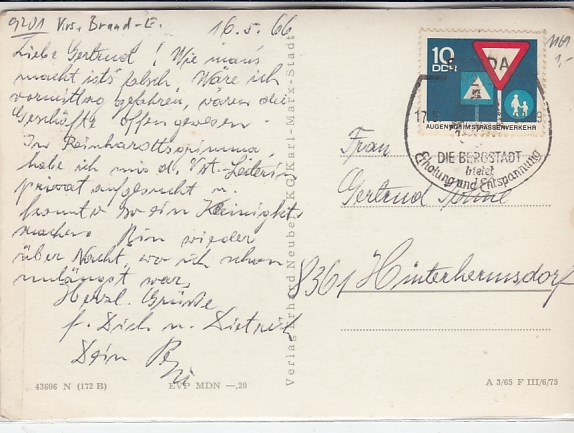 9201 Brand-E.
16.5.66
Liebe Gertrud! Wie man's
macht ist's falsch. Wäre ich
vormittag gefahren, wären die
Geschäfte offen gewesen.
In Reinhardtsgrimma
habe ich mir d. Leiterin
privat aufgesucht u.
konnte so ein
machen. Bin wieder
über Nacht, wo ich schon
unlängst war.
Herzl. Grüße
f. Dich u. Dietrich
Dein
43606 N (172 B)
EVP MDN —,20
Verlag Erhard Neubert KG, Karl-Marx-Stadt
10
DDR
AUGEN AUF IM STRASSENVERKEHR
DIE BERGSTADT
bietet
Erholung und Entspannung
Frau
Gertrud
8361 Hinterhermsdorf
A 3/65 F III/6/75
1169
1,-